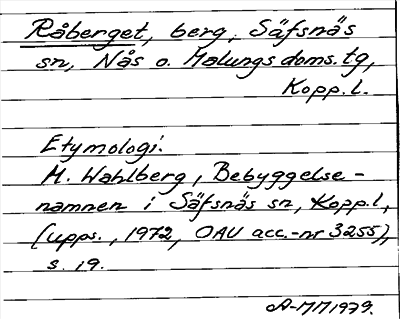 Råberget, berg, Säfsnäs
sn, Nås o. Malungs doms.tg,
Kopp.l.
Etymologi:
M. Wahlberg, Bebyggelse-
namnen i Säfsnäs sn, Kopp.l,
(upps., 1972, OAU acc.-nr 3255),
s. 19.
A-MM1979.